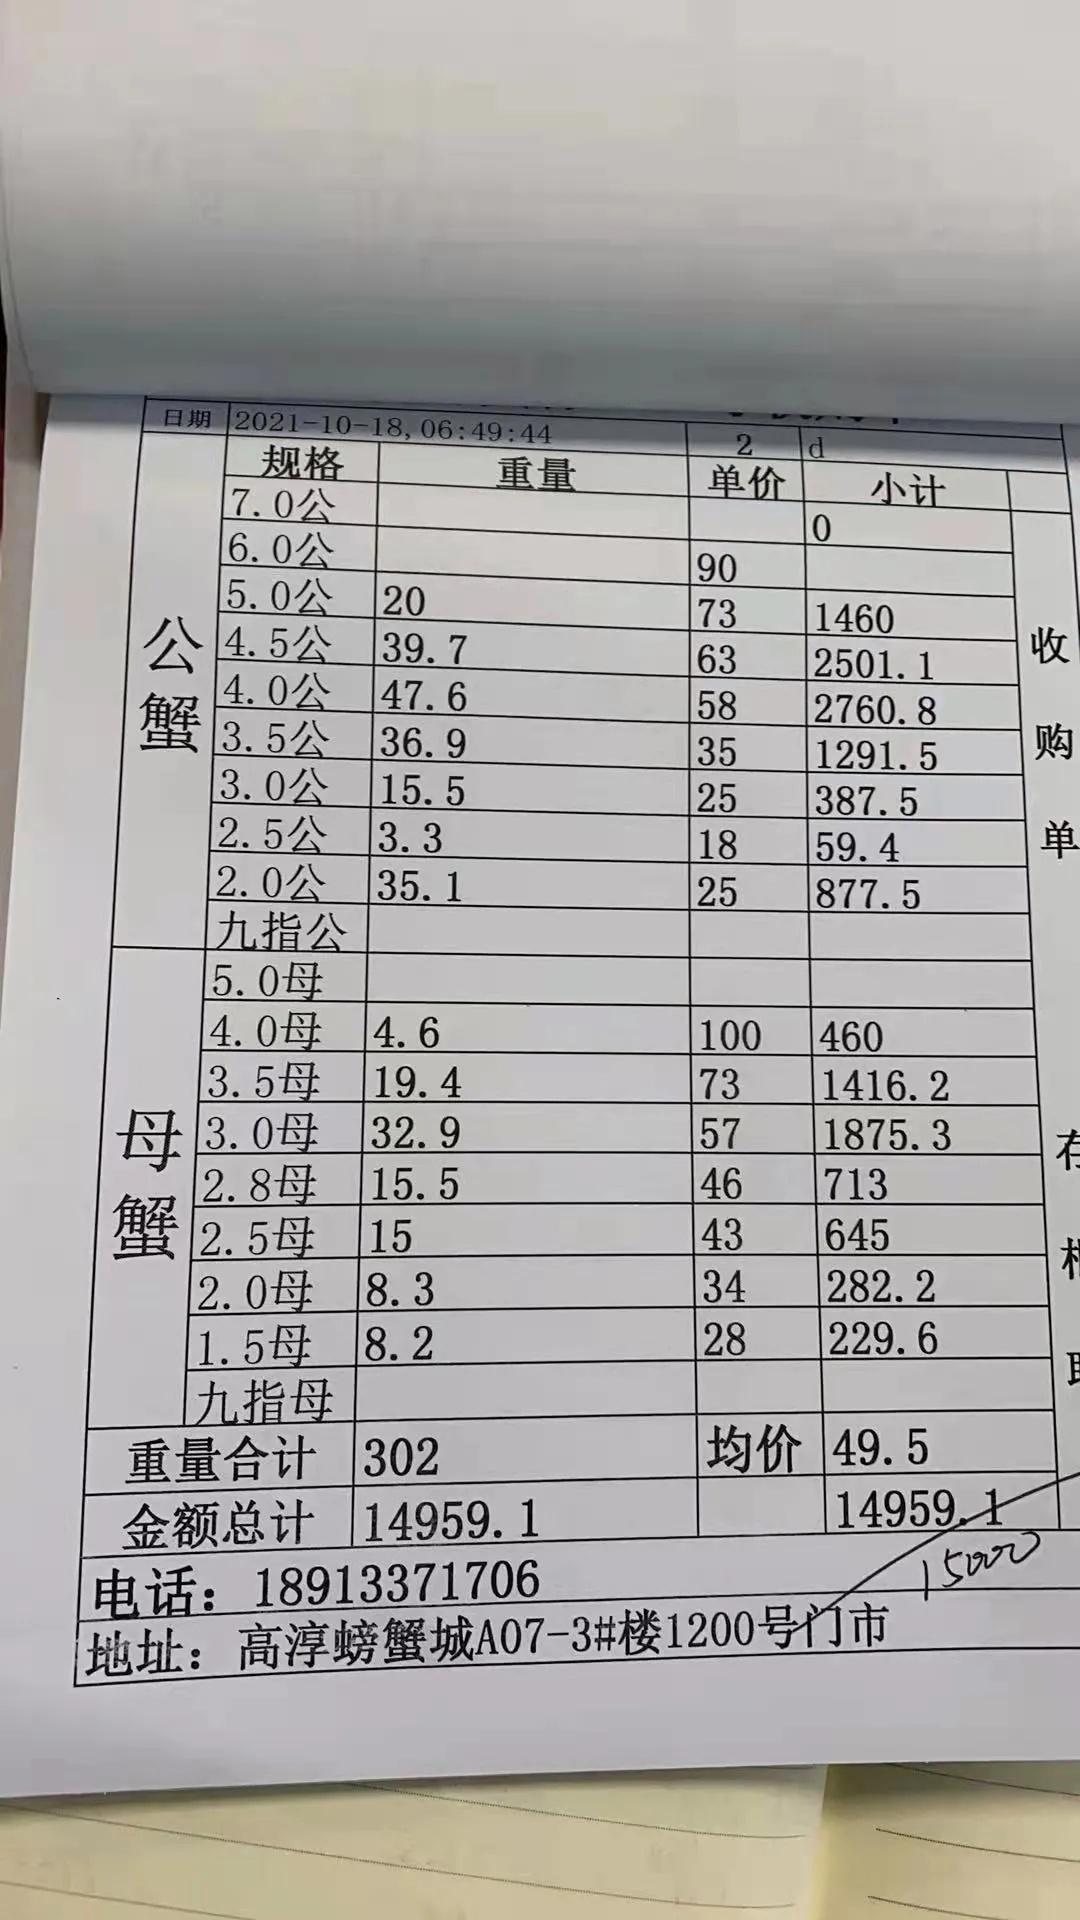 日期 2021-10-18,06:49:44 2 d
规格 重量 单价 小计
7.0公 0
6.0公 90
5.0公 20 73 1460
4.5公 39.7 63 2501.1
4.0公 47.6 58 2760.8
3.5公 36.9 35 1291.5
3.0公 15.5 25 387.5
2.5公 3.3 18 59.4
2.0公 35.1 25 877.5
九指公
公蟹
5.0母
4.0母 4.6 100 460
3.5母 19.4 73 1416.2
3.0母 32.9 57 1875.3
2.8母 15.5 46 713
2.5母 15 43 645
2.0母 8.3 34 282.2
1.5母 8.2 28 229.6
九指母
母蟹
收购单
重量合计 302 均价 49.5
金额总计 14959.1 14959.1
15000
电话：18913371706
地址：高淳螃蟹城A07-3#楼1200号门市